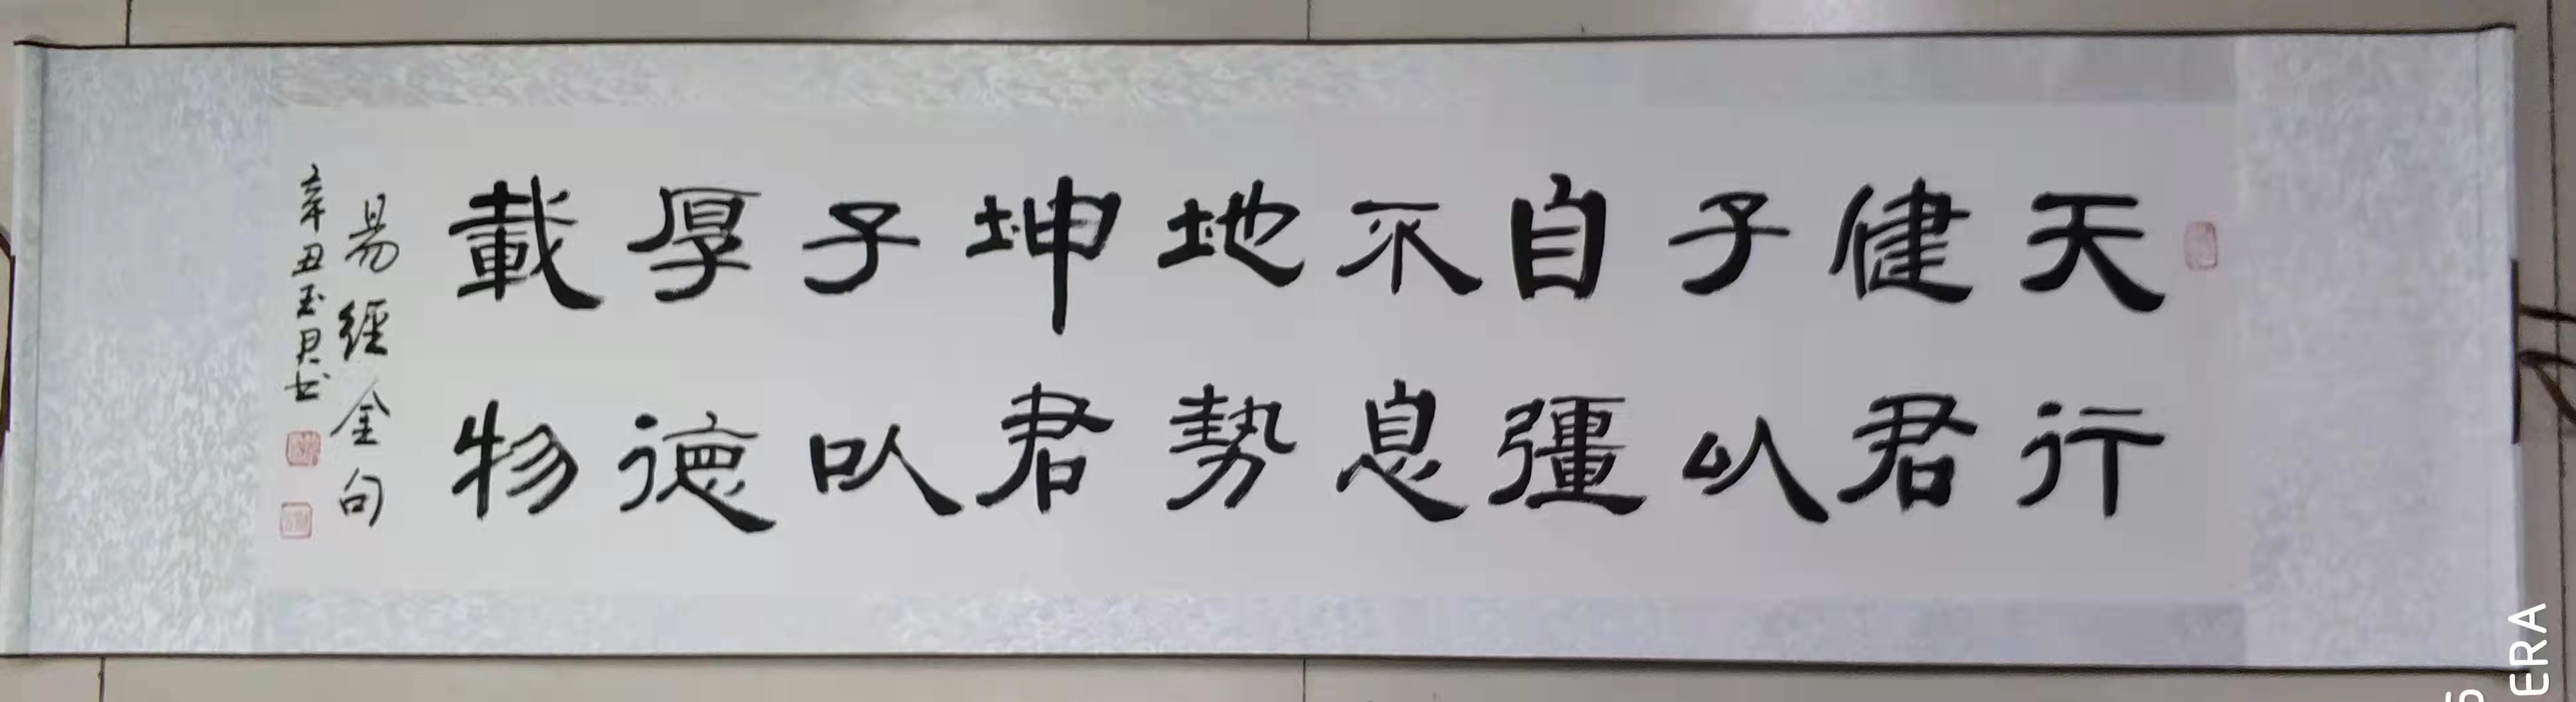 天行
健君
子以
自彊
不息
地勢
坤君
子以
厚德
載物
易經金句
辛丑玉君书
ERA